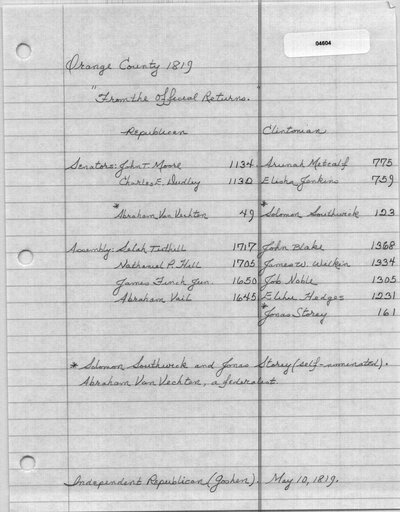 04604
Orange County 1819
"From the Official Returns."
Republican Clintonian
Senators: John T Moore 1134 Arunah Metcalf 775
Charles E. Dudley 1130 Elisha Jenkins 759
* Abraham Van Vechten 49 * Solomon Southwick 123
Assembly: Selah Tuthill 1717 John Blake 1368
Nathaniel P. Hill 1705 James W. Wilkin 1334
James Finch Jun. 1650 Job Noble 1305
Abraham Vail 1645 Elihu Hedges 1231
* Jonas Storey 161
* Solomon Southwick and Jonas Storey (self-nominated).
Abraham Van Vechten, a federalist.
Independent Republican (Goshen). May 10, 1819.